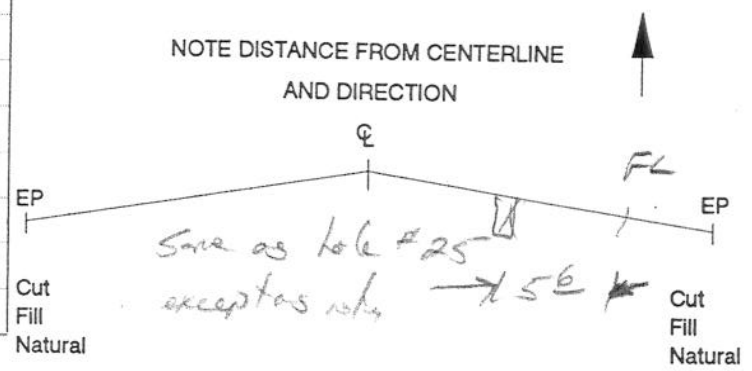 NOTE DISTANCE FROM CENTERLINE
AND DIRECTION
℄
FL
EP
EP
Same as hole #25
except as
5 6
Cut
Fill
Natural
Cut
Fill
Natural